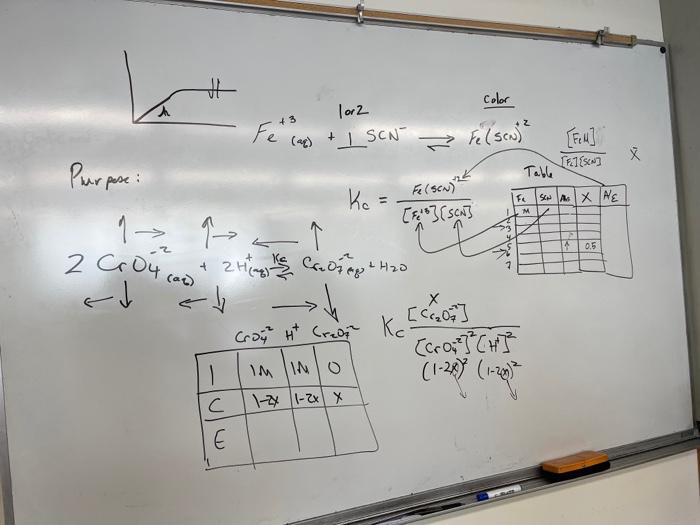 1 or 2
Color
Fe⁺³(aq) + 1 SCN⁻ ⇌ Fe(SCN)⁺²
[FeM]
[Fe][SCN]
X̄
Purpose:
Kc = Fe(SCN)⁺² / [Fe⁺³][SCN]
Table
Fe SCN Abs X A/ε
1 M
2
3
4
5 ↑ 0.5
6
7
↑→ ↑→ ← ↑
2 CrO₄⁻²(aq) + 2H⁺(aq) ⇌ Kc Cr₂O₇⁻²(aq) + H₂O
←↓ ←↓ →↓
CrO₄⁻² H⁺ Cr₂O₇⁻²
I 1M 1M 0
C 1-2x 1-2x x
E
X
Kc [Cr₂O₇⁻²] / [CrO₄⁻²]² [H⁺]²
(1-2x)² (1-2x)²